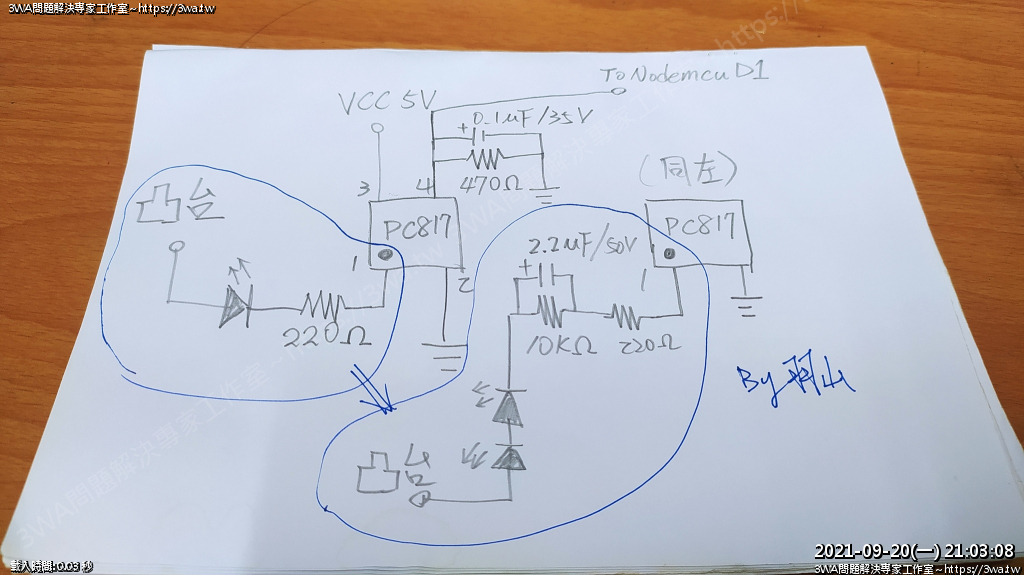 3WA問題解決專家工作室~https://3wa.tw
To Nodemcu D1
VCC 5V
+ 0.1uF/35V
470Ω
3
4
PC817
1
2
凸台
220Ω
(同左)
PC817
1
2.2uF/50V
+
10KΩ
220Ω
凸台
By 羽山
2021-09-20(一) 21:03:08
載入時間:0.03 秒
3WA問題解決專家工作室~https://3wa.tw